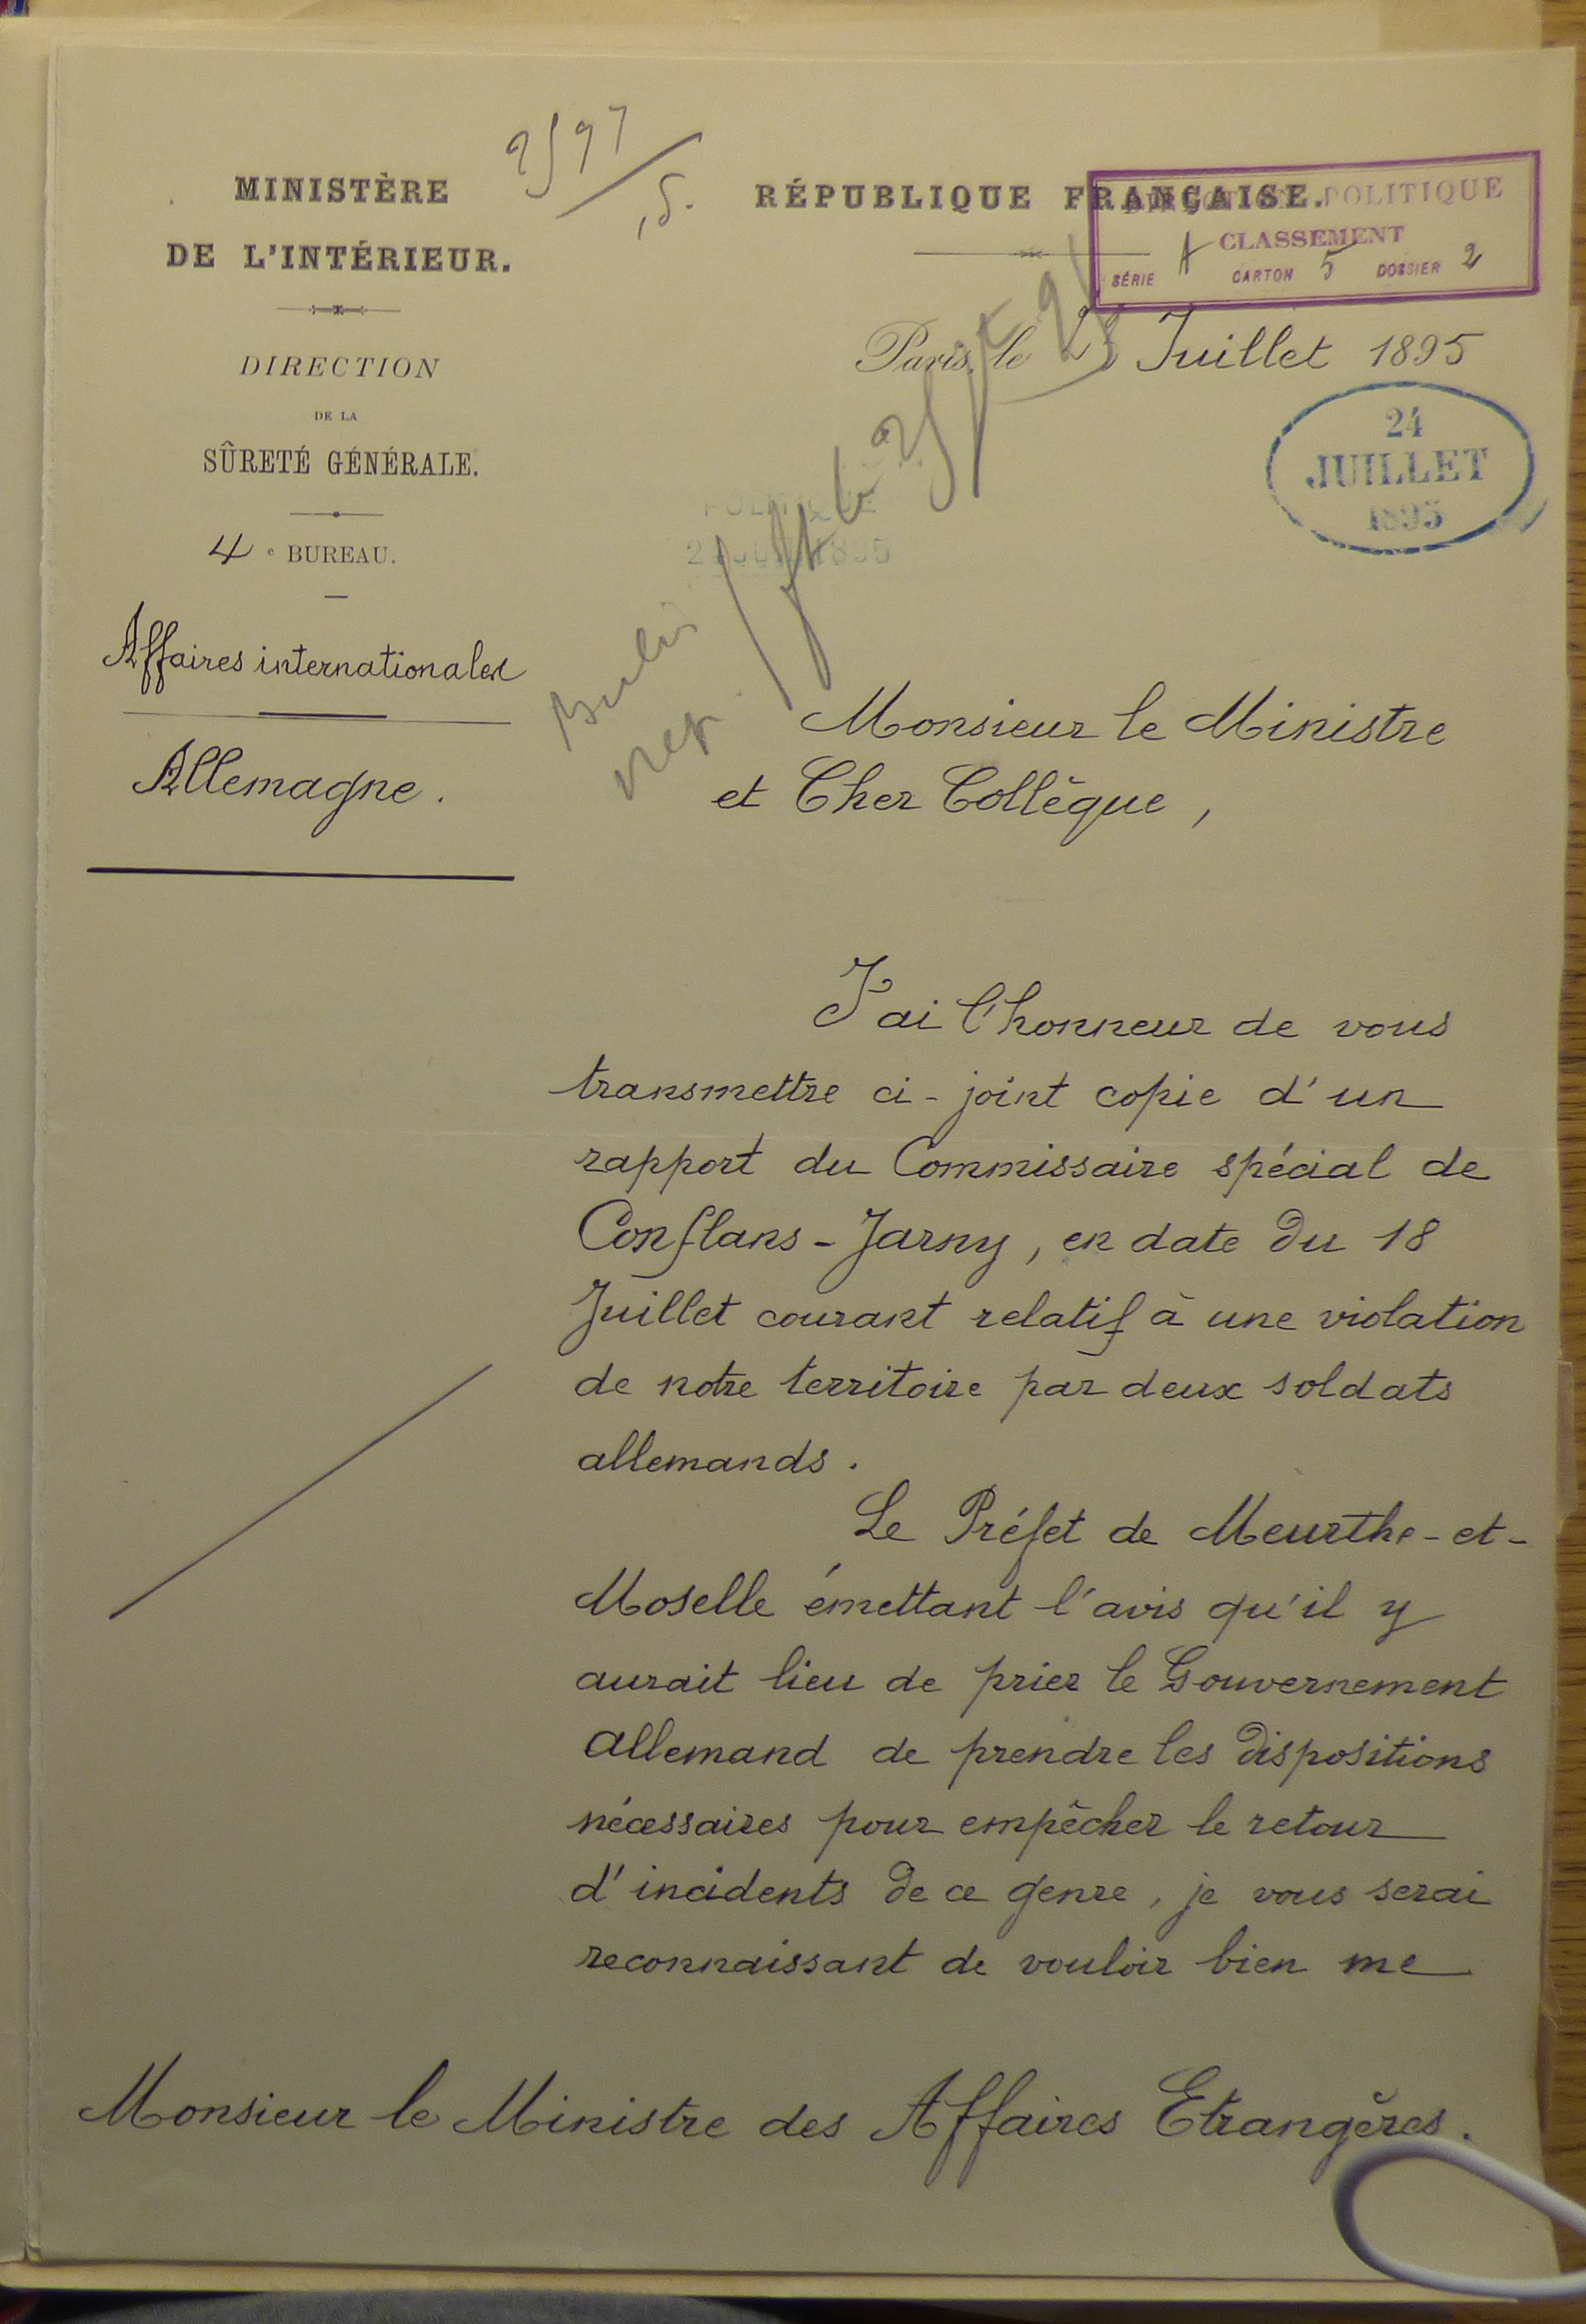 2597
/5.
MINISTÈRE
DE L'INTÉRIEUR.
DIRECTION
DE LA
SÛRETÉ GÉNÉRALE.
4e BUREAU.
Affaires internationales
Allemagne.
RÉPUBLIQUE FRANÇAISE.
DIRECTION POLITIQUE
CLASSEMENT
SÉRIE A CARTON 5 DOSSIER 2
Paris, le 23 Juillet 1895
24
JUILLET
1895
POLITIQUE
Berlin
Monsieur le Ministre
et Cher Collègue,
J'ai l'honneur de vous
transmettre ci-joint copie d'un
rapport du Commissaire spécial de
Conflans-Jarny, en date du 18
Juillet courant relatif à une violation
de notre territoire par deux soldats
allemands.
Le Préfet de Meurthe-et-
Moselle émettant l'avis qu'il y
aurait lieu de prier le Gouvernement
allemand de prendre les dispositions
nécessaires pour empêcher le retour
d'incidents de ce genre, je vous serai
reconnaissant de vouloir bien me
Monsieur le Ministre des Affaires Etrangères.